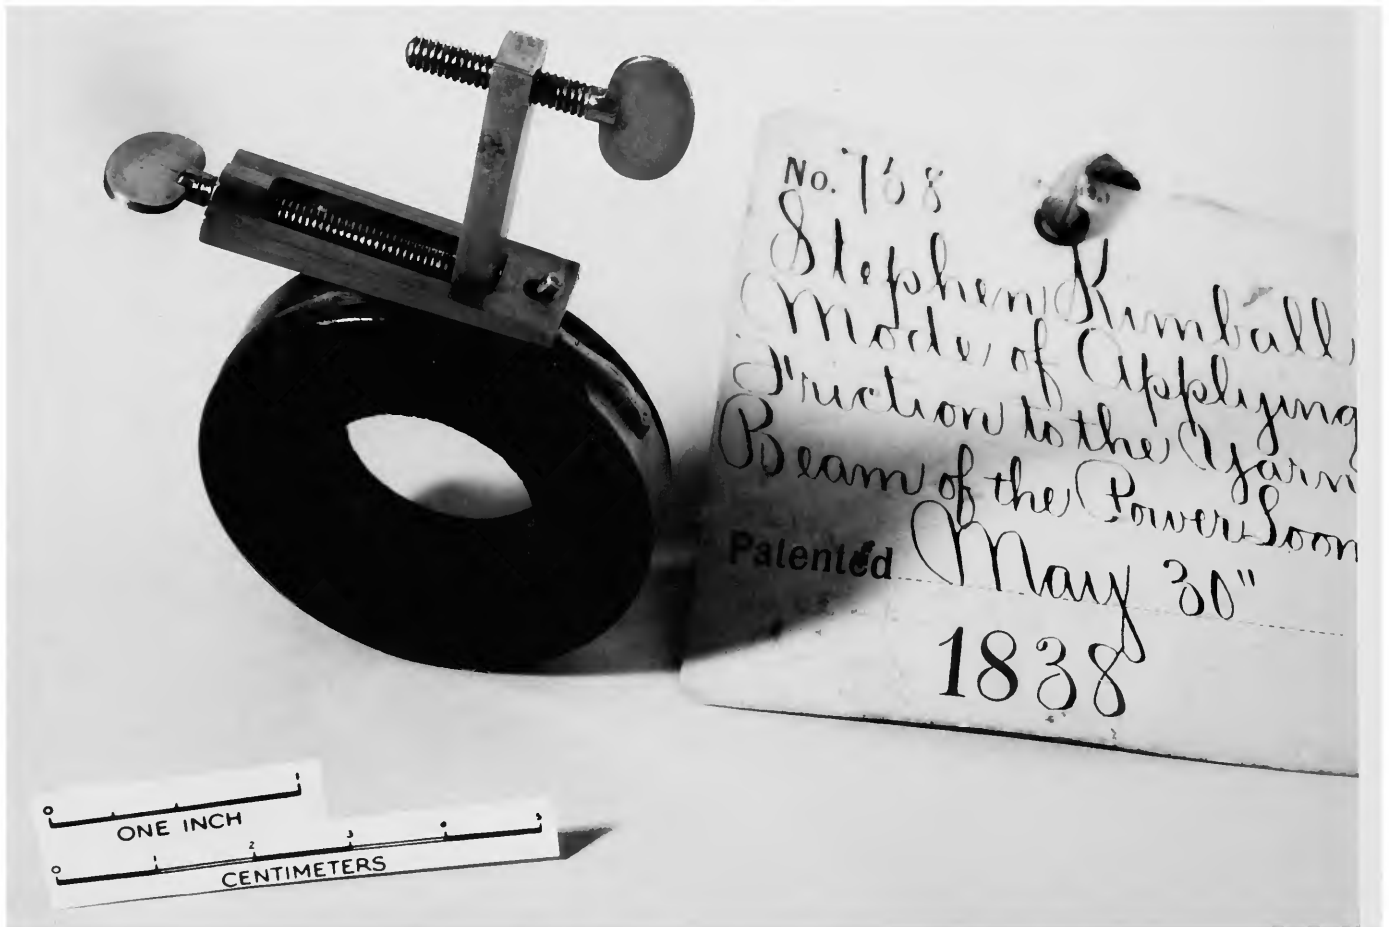 No. 768
Stephen Kimball
Mode of Applying
Friction to the Yarn
Beam of the Power Loom
Patented May 30"
1838
0 1
ONE INCH
0 1 2 3 4 5
CENTIMETERS